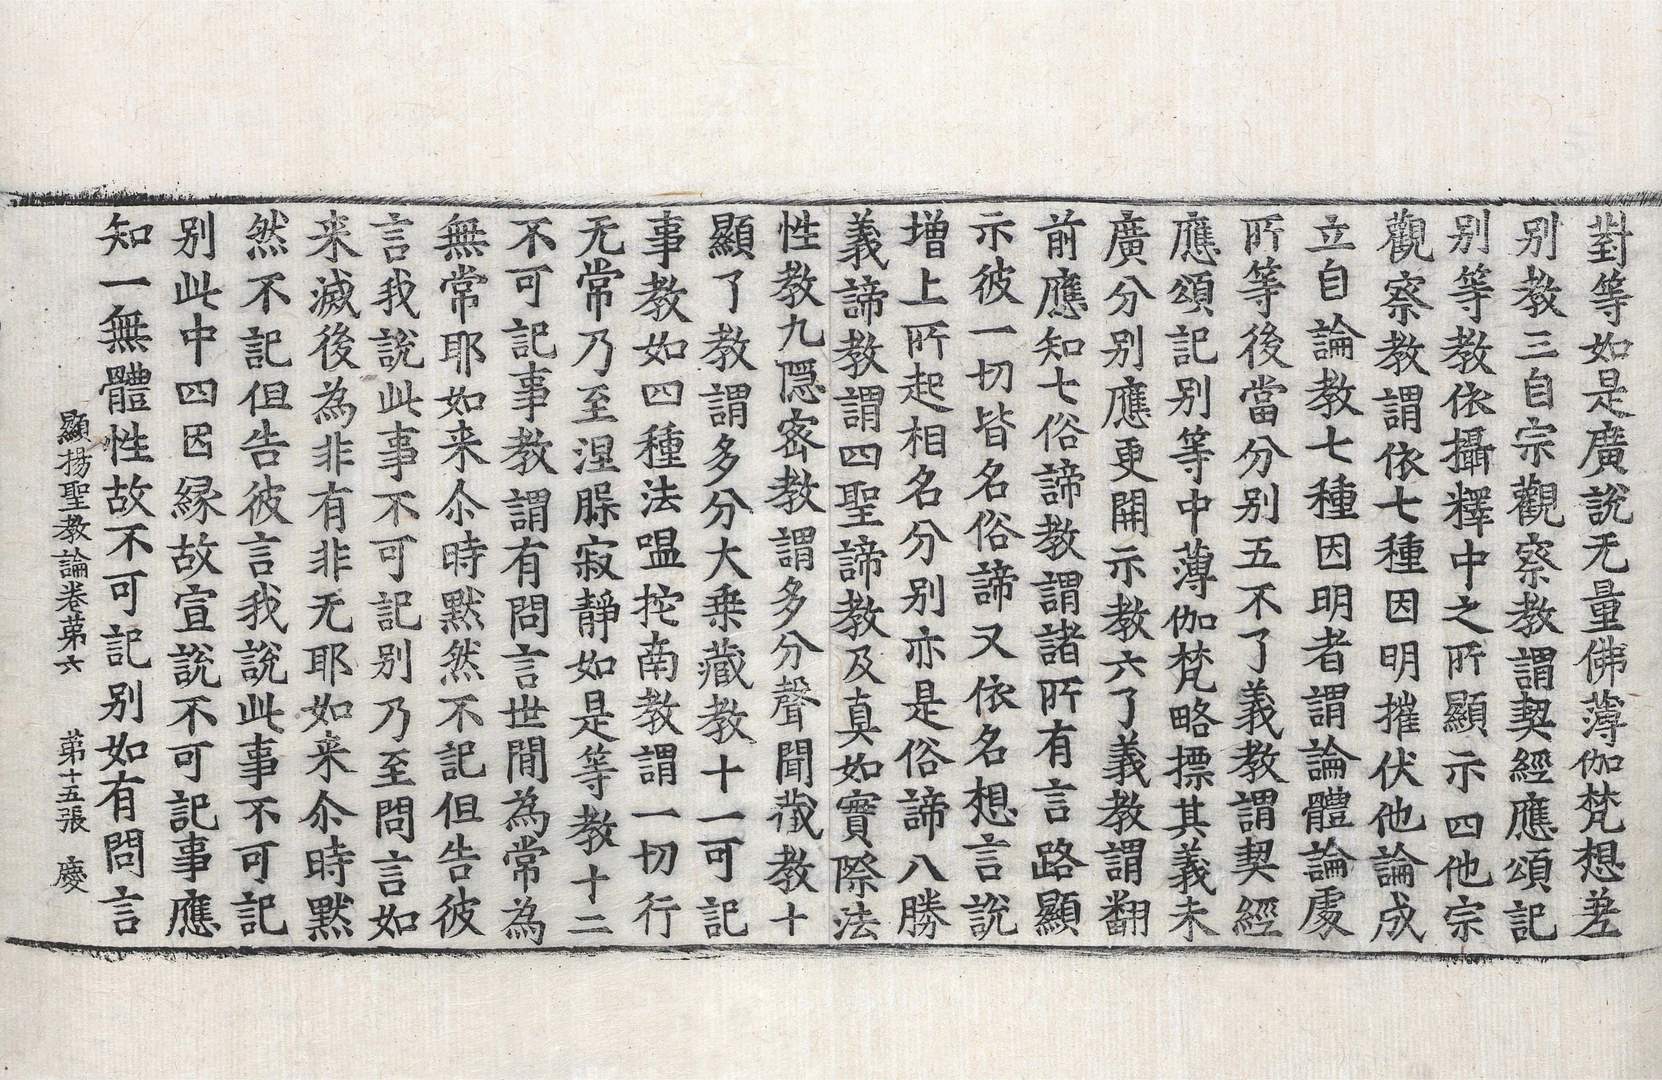 對等如是廣說无量佛薄伽梵想差
別教三自宗觀察教謂契經應頌記
別等教依攝釋中之所顯示四他宗
觀察教謂依七種因明摧伏他論成
立自論教七種因明者謂論體論處
所等後當分別五不了義教謂契經
應頌記別等中薄伽梵略摽其義未
廣分別應更開示教六了義教謂翻
前應知七俗諦教謂諸所有言路顯
示彼一切皆名俗諦又依名想言說
增上所起相名分別亦是俗諦八勝
義諦教謂四聖諦教及真如實際法
性教九隱密教謂多分聲聞藏教十
顯了教謂多分大乘藏教十一可記
事教如四種法嗢拕南教謂一切行
无常乃至涅槃寂靜如是等教十二
不可記事教謂有問言世間為常為
無常耶如来尒時默然不記但告彼
言我說此事不可記別乃至問言如
来滅後為非有非无耶如来尒時默
然不記但告彼言我說此事不可記
別此中四因緣故宣說不可記事應
知一無體性故不可記別如有問言
顯揚聖教論卷第六　第十五張　慶